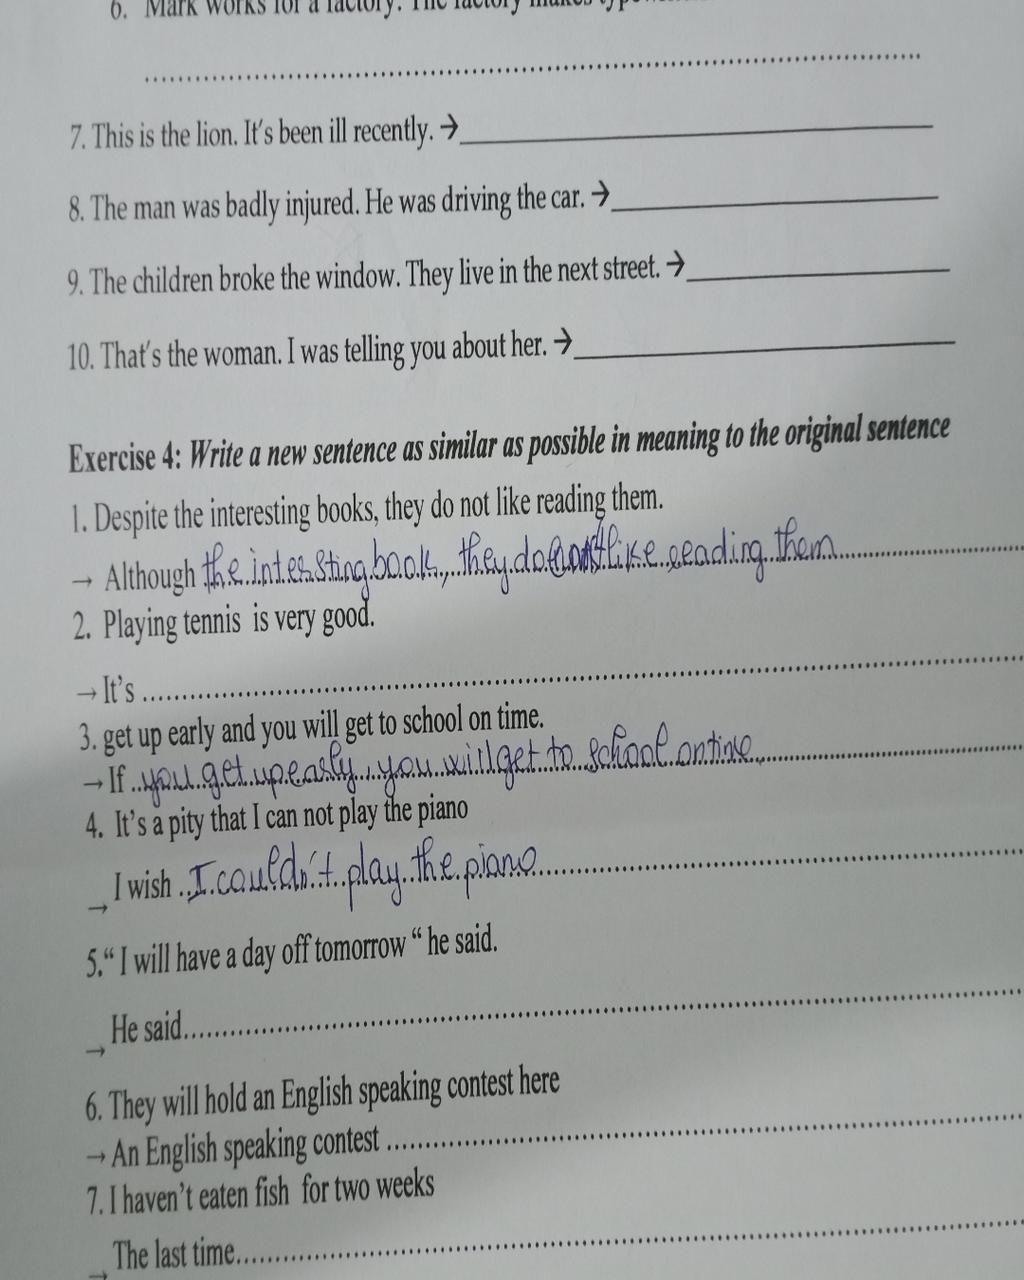 6. Mark works for a factory. The factory makes
7. This is the lion. It's been ill recently. →
8. The man was badly injured. He was driving the car. →
9. The children broke the window. They live in the next street. →
10. That's the woman. I was telling you about her. →
Exercise 4: Write a new sentence as similar as possible in meaning to the original sentence
1. Despite the interesting books, they do not like reading them.
→ Although the intersting book, they do not like reading them
2. Playing tennis is very good.
→ It's
3. get up early and you will get to school on time.
→ If you get up early, you will get to school on time
4. It's a pity that I can not play the piano
→ I wish I couldn't play the piano
5. “ I will have a day off tomorrow “ he said.
→ He said
6. They will hold an English speaking contest here
→ An English speaking contest
7. I haven't eaten fish for two weeks
→ The last time